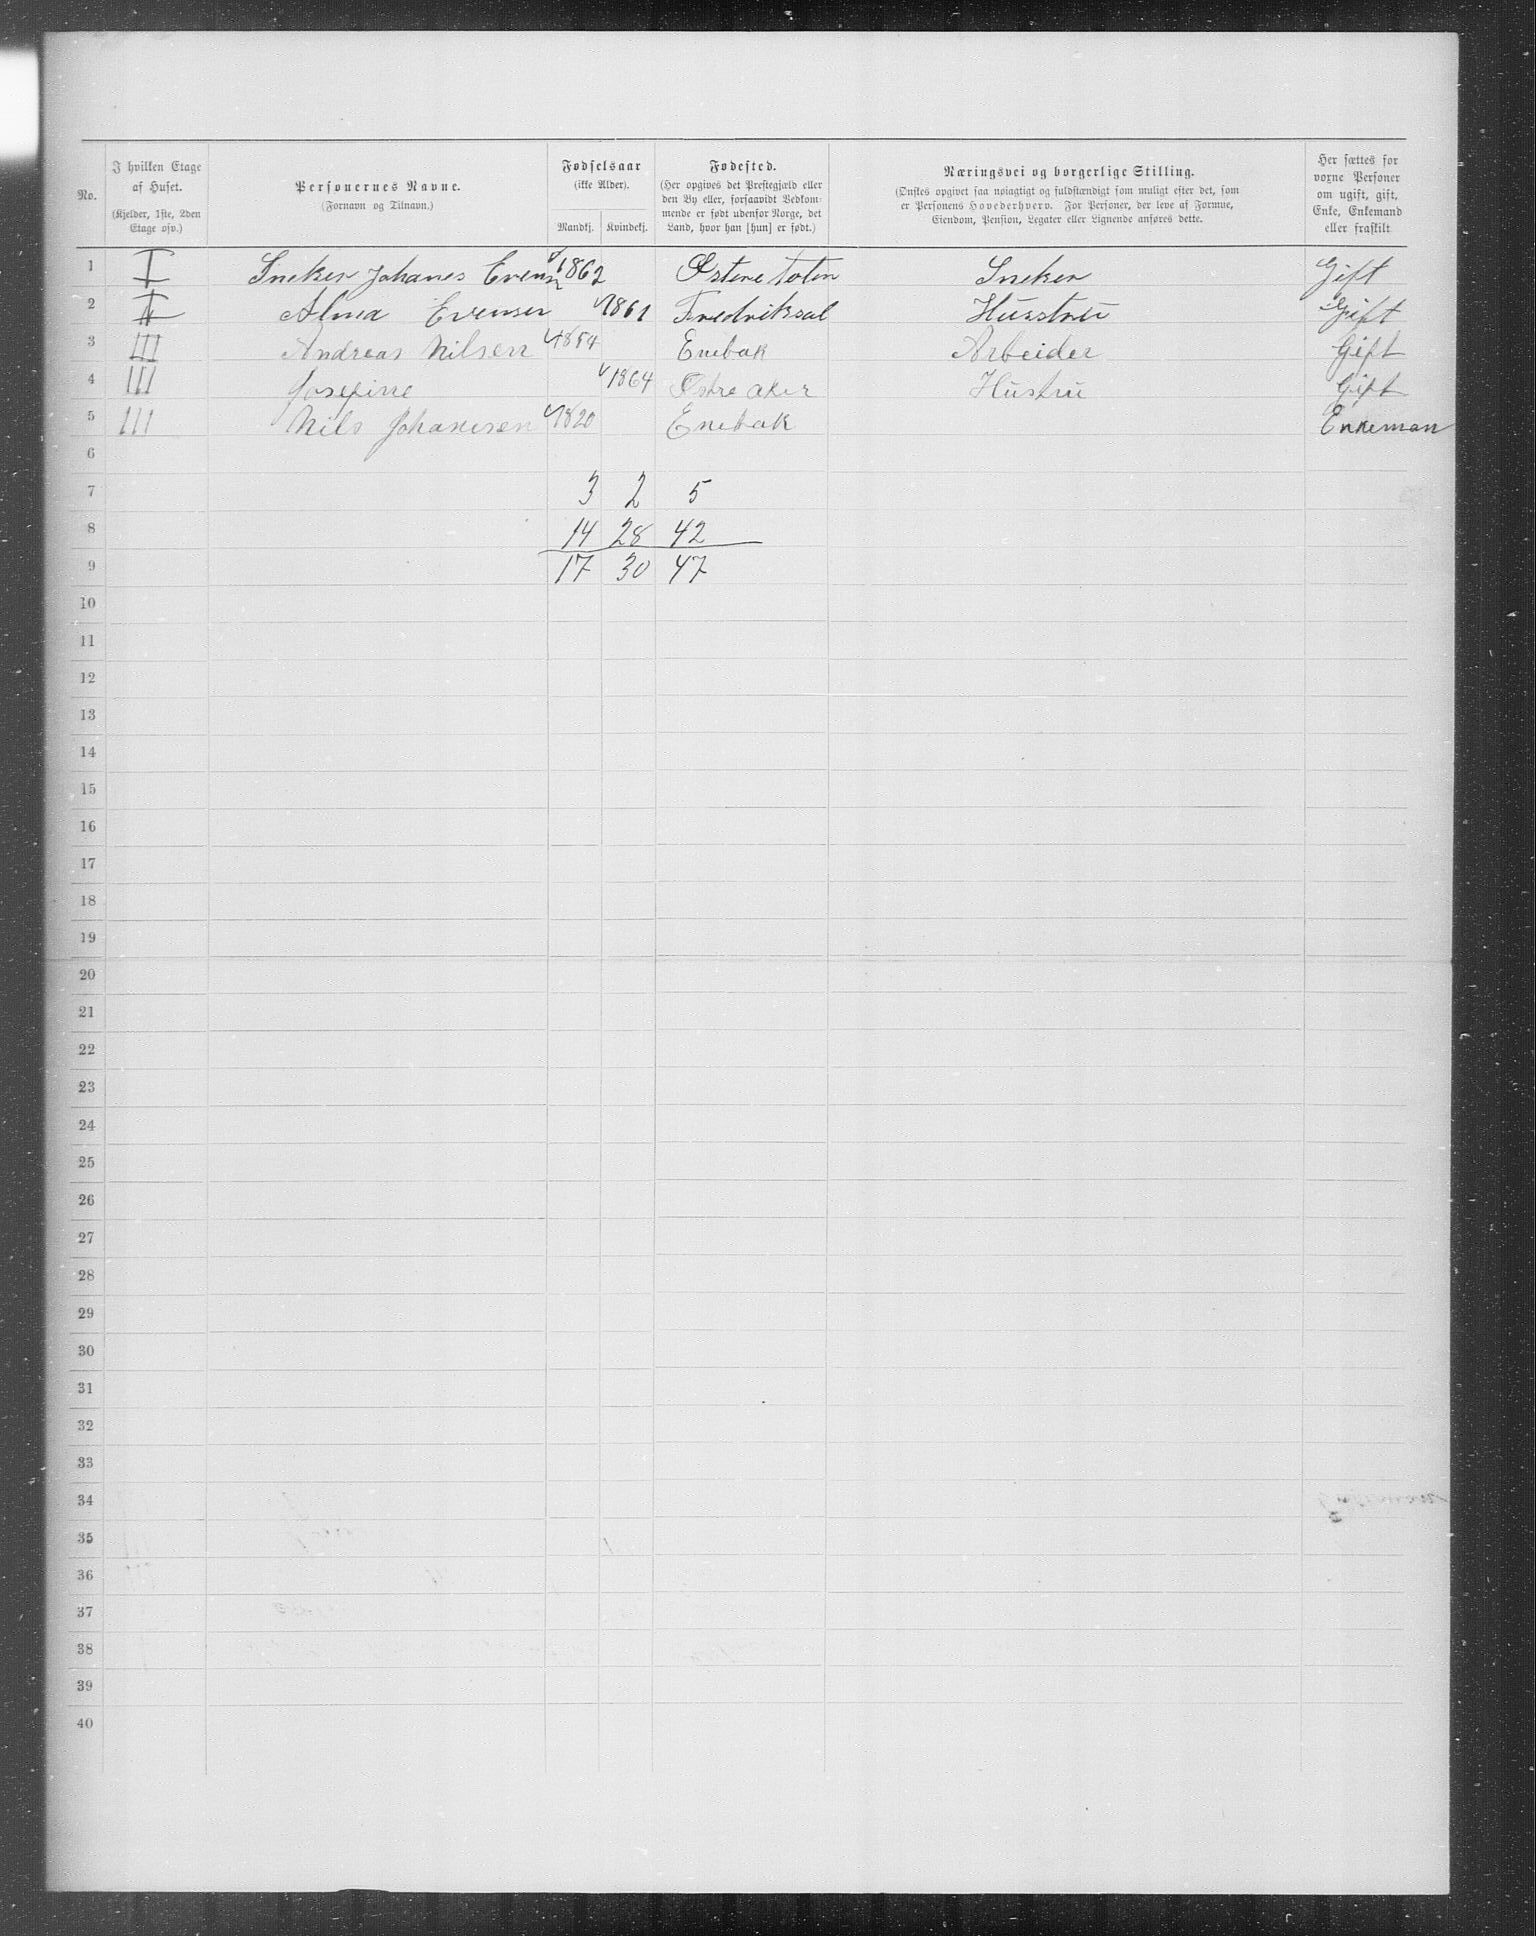 No.
I hvilken Etage af Huset.
(Kjelder, 1ste, 2den Etage osv.)
Personernes Navne.
(Fornavn og Tilnavn.)
Fødselsaar
(ikke Alder).
Mandkj. Kvindekj.
Fødested.
(Her opgives det Prestegjæld eller
den By eller, forsaavidt Vedkom-
mende er født udenfor Norge, det
Land, hvor han [hun] er født.)
Næringsvei og borgerlige Stilling.
(Ønskes opgivet saa nøiagtigt og fuldstændigt som muligt efter det, som
er Personens Hovederhverv. For Personer, der leve af Formue,
Eiendom, Pension, Legater eller Lignende anføres dette.
Her sættes for
voxne Personer
om ugift, gift,
Enke, Enkemand
eller fraskilt
1 I Sneker Johanes Evensen 1862 Østere toten Sneker Gift
2 II Alma Evensen 1861 Fredriksal Husstru Gift
3 III Andreas Nilsen 1854 Enebak Arbeider Gift
4 III Josefine 1864 Østre aker Hustru Gift
5 III Nils Johanesen 1820 Enebak Enkeman
6
7 3 2 5
8 14 28 42
9 17 30 47
10
11
12
13
14
15
16
17
18
19
20
21
22
23
24
25
26
27
28
29
30
31
32
33
34
35
36
37
38
39
40